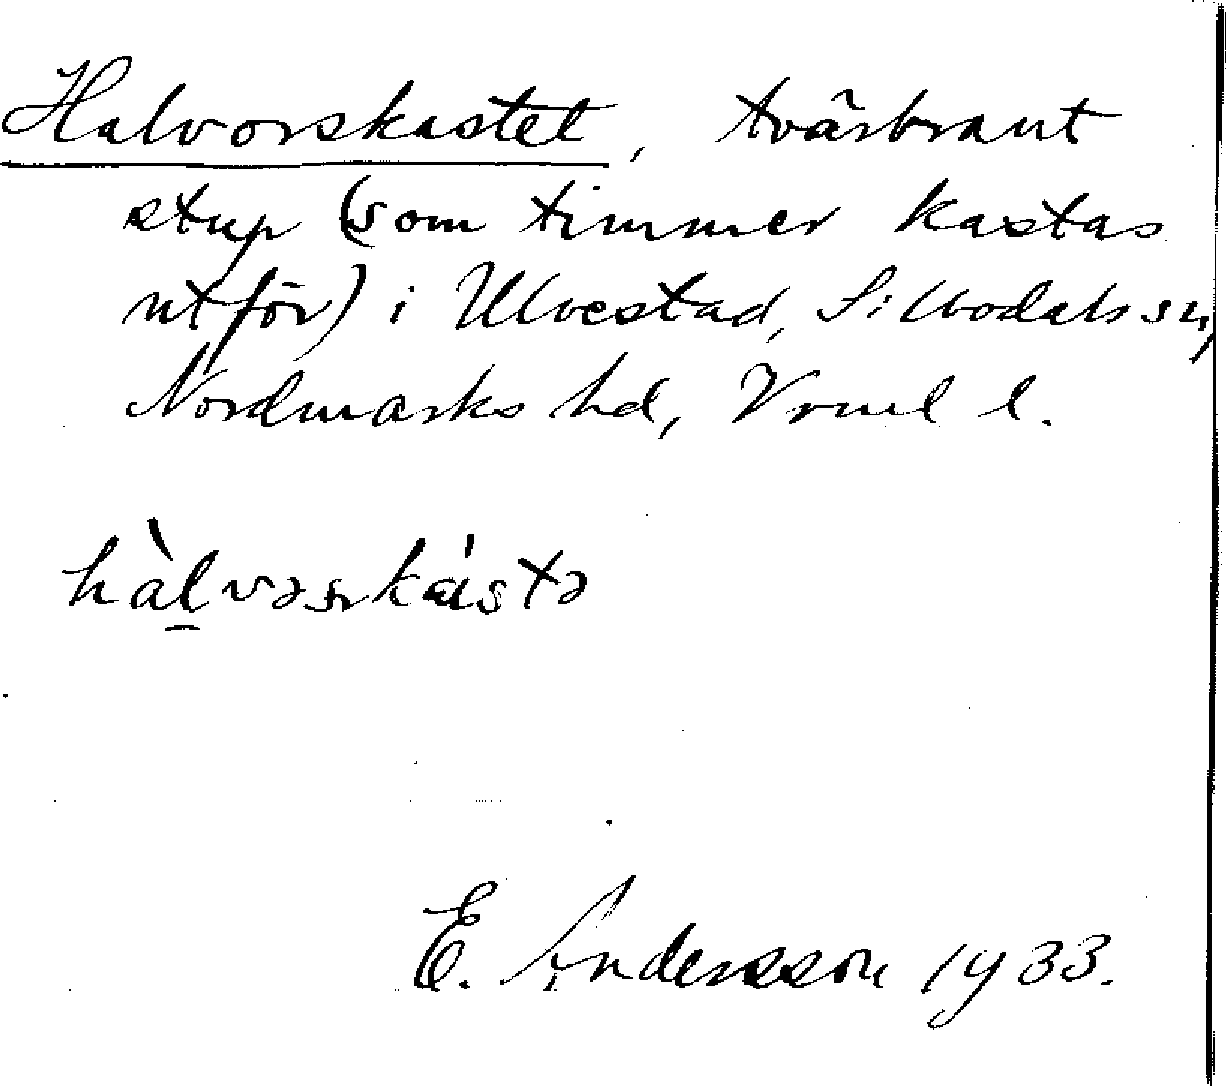 Halvorskastet, tvärbrant
stup (som timmer kastas
utför) i Ulvestad, Silbodals sn,
Nordmarks hd, Vrml l.
hàlvəsʀkástə
E. Andersson 1933.